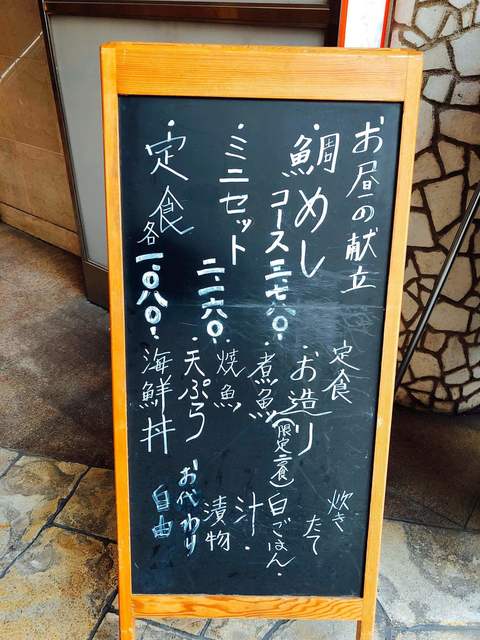 お昼の献立
・鯛めし
コース三、七八〇!
・ミニセット
二、一六〇!
・定食
各一、〇八〇!
定食
・お造り
(限定二食)
・煮魚
・焼魚
・天ぷら
・海鮮丼
炊き
たて
白ごはん・
汁・
漬物
お代わり
自由